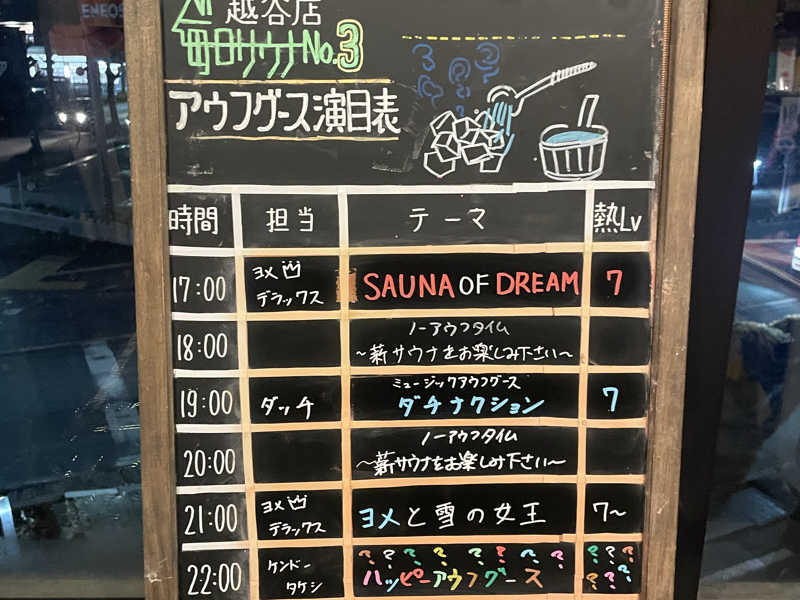 ENEOS
越谷店
毎日サウナNo.3
アウフグース演目表
時間 担当 テーマ 熱Lv
17:00 ヨメ デラックス SAUNA OF DREAM 7
18:00 ノーアウフタイム
~薪サウナをお楽しみ下さい~
19:00 ダッチ ミュージックアウフグース
ダチナクション 7
20:00 ノーアウフタイム
~薪サウナをお楽しみ下さい~
21:00 ヨメ デラックス ヨメと雪の女王 7~
22:00 ケンドータケシ ? ? ? ? ? ? ? ? ? ? ?
ハッピーアウフグース ? ?